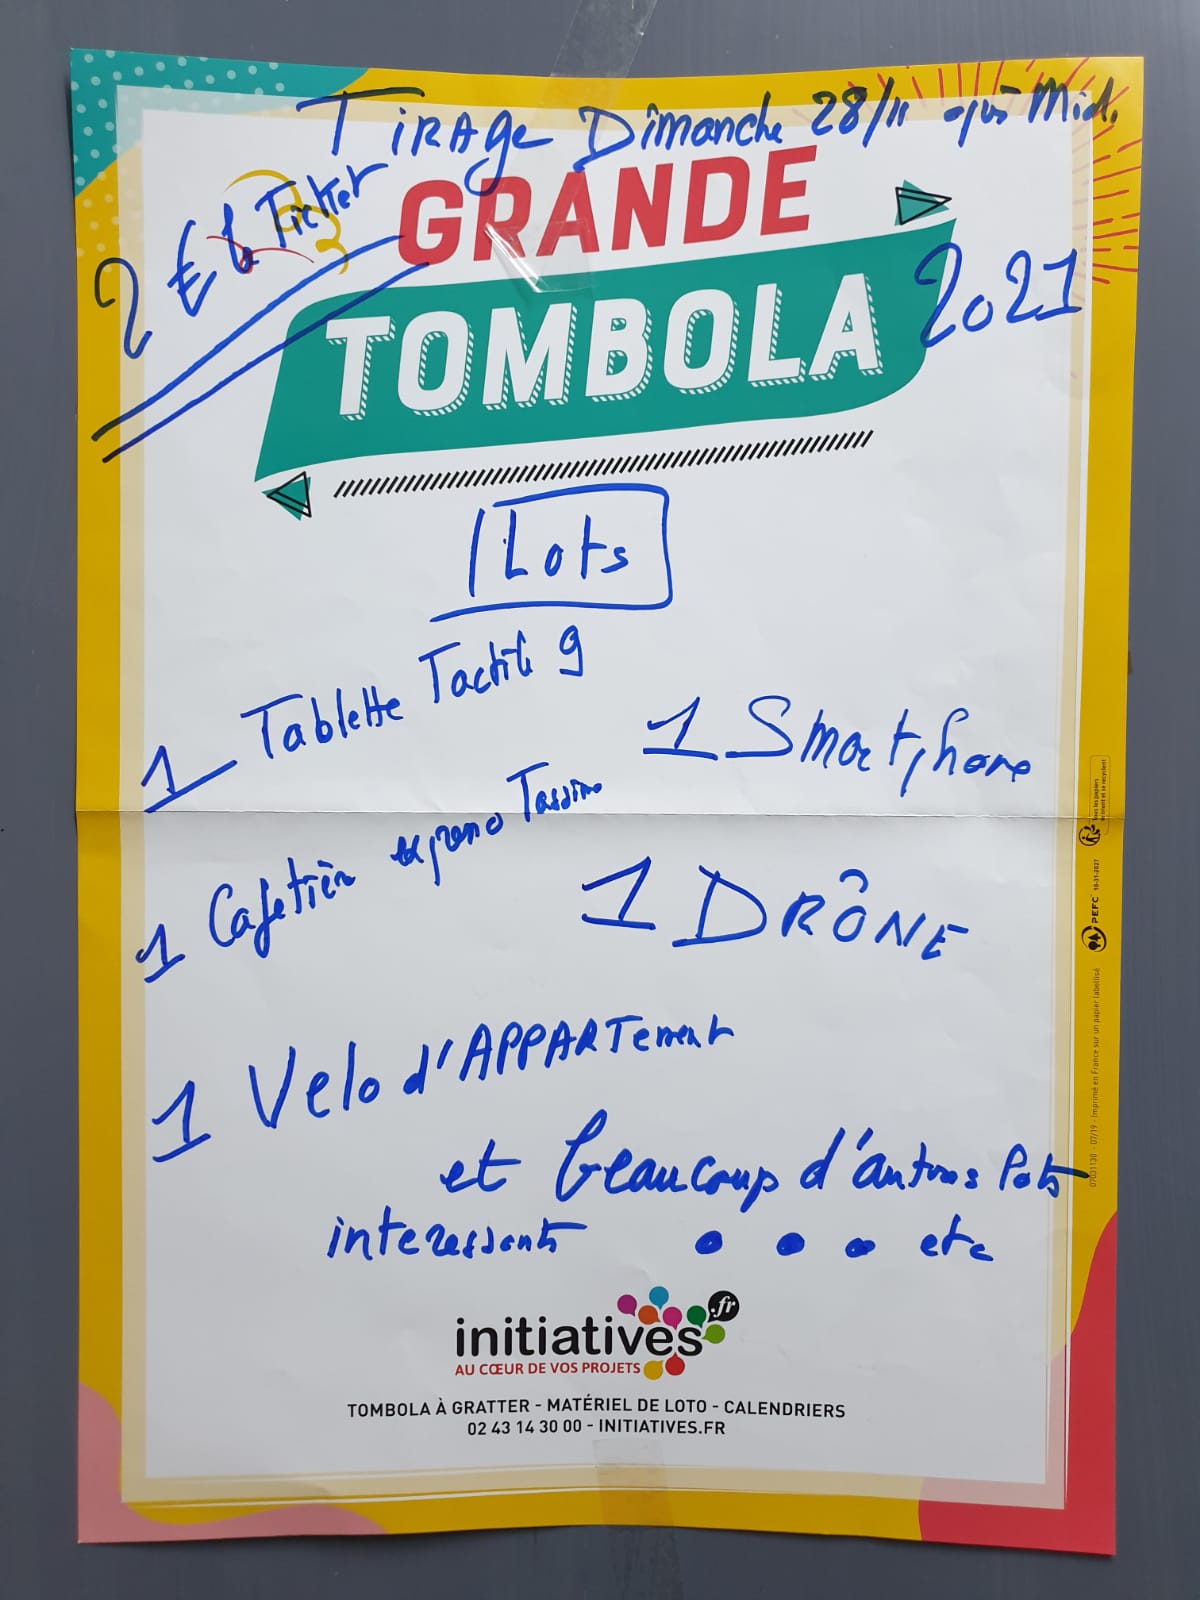 Tirage Dîmanche 28/11 après Midi
2 € la Ticket
GRANDE
TOMBOLA
2021
Lots
1 Tablette Tactile 9
1 Smartphone
1 Cafetière expresso Tassimo
1 DRÔNE
1 Velo d'APPARTement
et beaucoup d'autres lots
interessants . . . etc
initiatives.fr
AU CŒUR DE VOS PROJETS
TOMBOLA À GRATTER - MATÉRIEL DE LOTO - CALENDRIERS
02 43 14 30 00 - INITIATIVES.FR
07031130 - 07/19 - Imprimé en France sur un papier labellisé
PEFC 10-31-2827